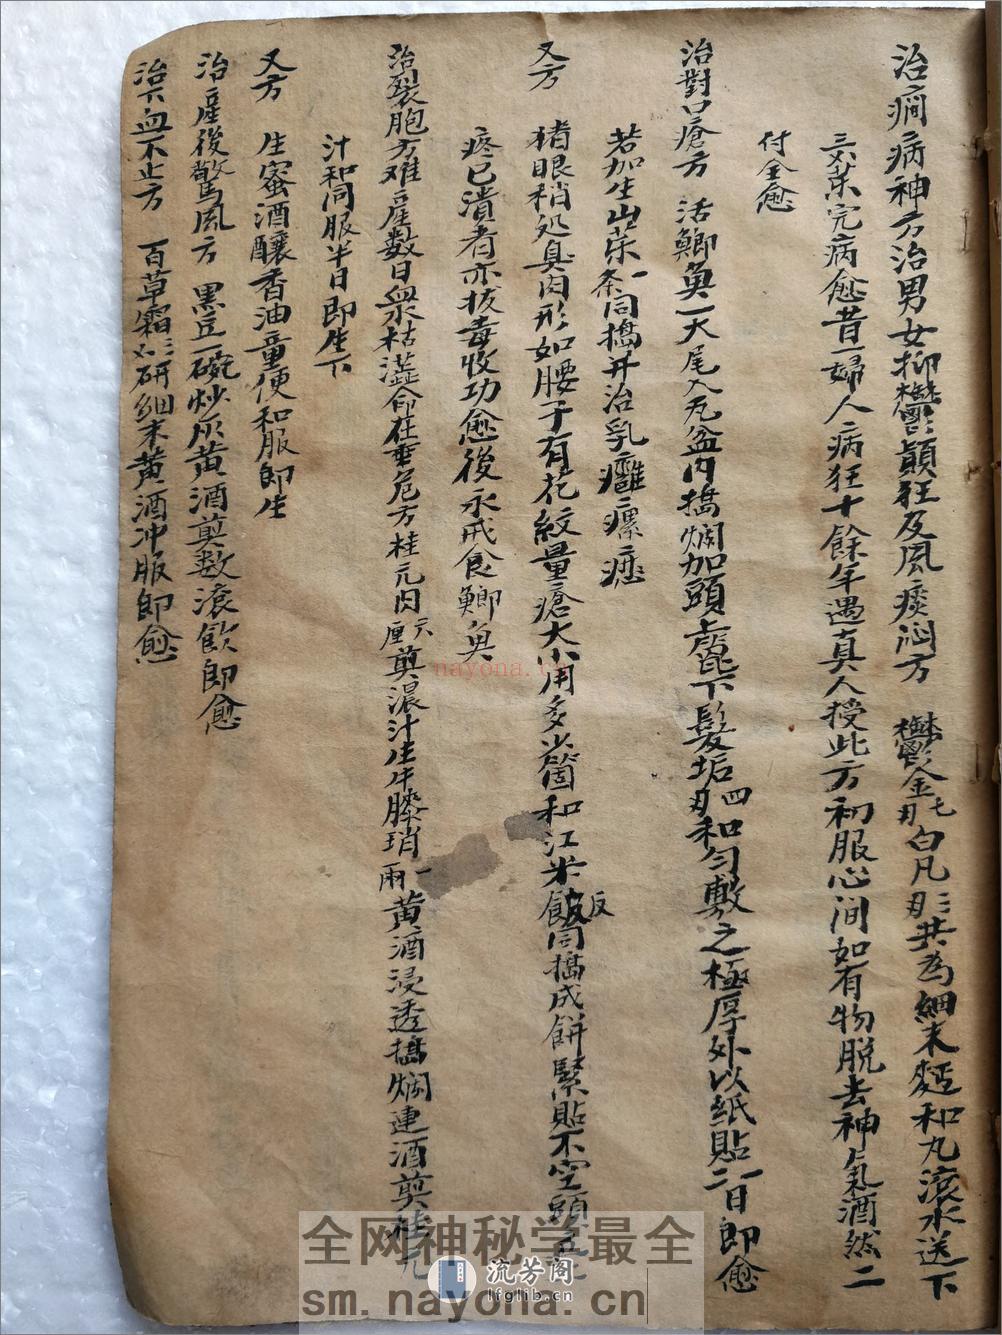 治癎病神方治男女抑鬱顛狂及風痰悶方 鬱金七刄白凡三刄共為細末麪和丸滾水送下
三分茶完病愈昔一婦人病狂十餘年遇真人授此方初服心间如有物脱去神氣洒然二
付全愈
治對口瘡方 活鯽魚一大尾入瓦盆内搗爛加頭上篦下髮垢四刄和匀敷之極厚外以纸貼一二日即愈
若加生山茱一条同搗并治乳癰瘰癧
又方 猪眼稍処臭肉形如腰子有花紋量瘡大小用多少箇和江米飯同搗成餅緊貼不空頭
疼已潰者亦拔毒收功愈後永戒食鯽魚
治裂胞方难產数日血水枯澁命在垂危方桂元肉六厘煎濃汁生牛膝稍一兩黄酒浸透搗爛連酒煎桂元
汁和同服半日即生下
又方 生蜜酒釀香油童便和服即生
治產後驚風方 黑豆一碗炒灰黄酒煎数滾飲即愈
治下血不止方 百草霜三刄研细末黄酒冲服即愈
nayona.cn
全网神秘学最全
流芳阁
lfglib.cn
sm.nayona.cn